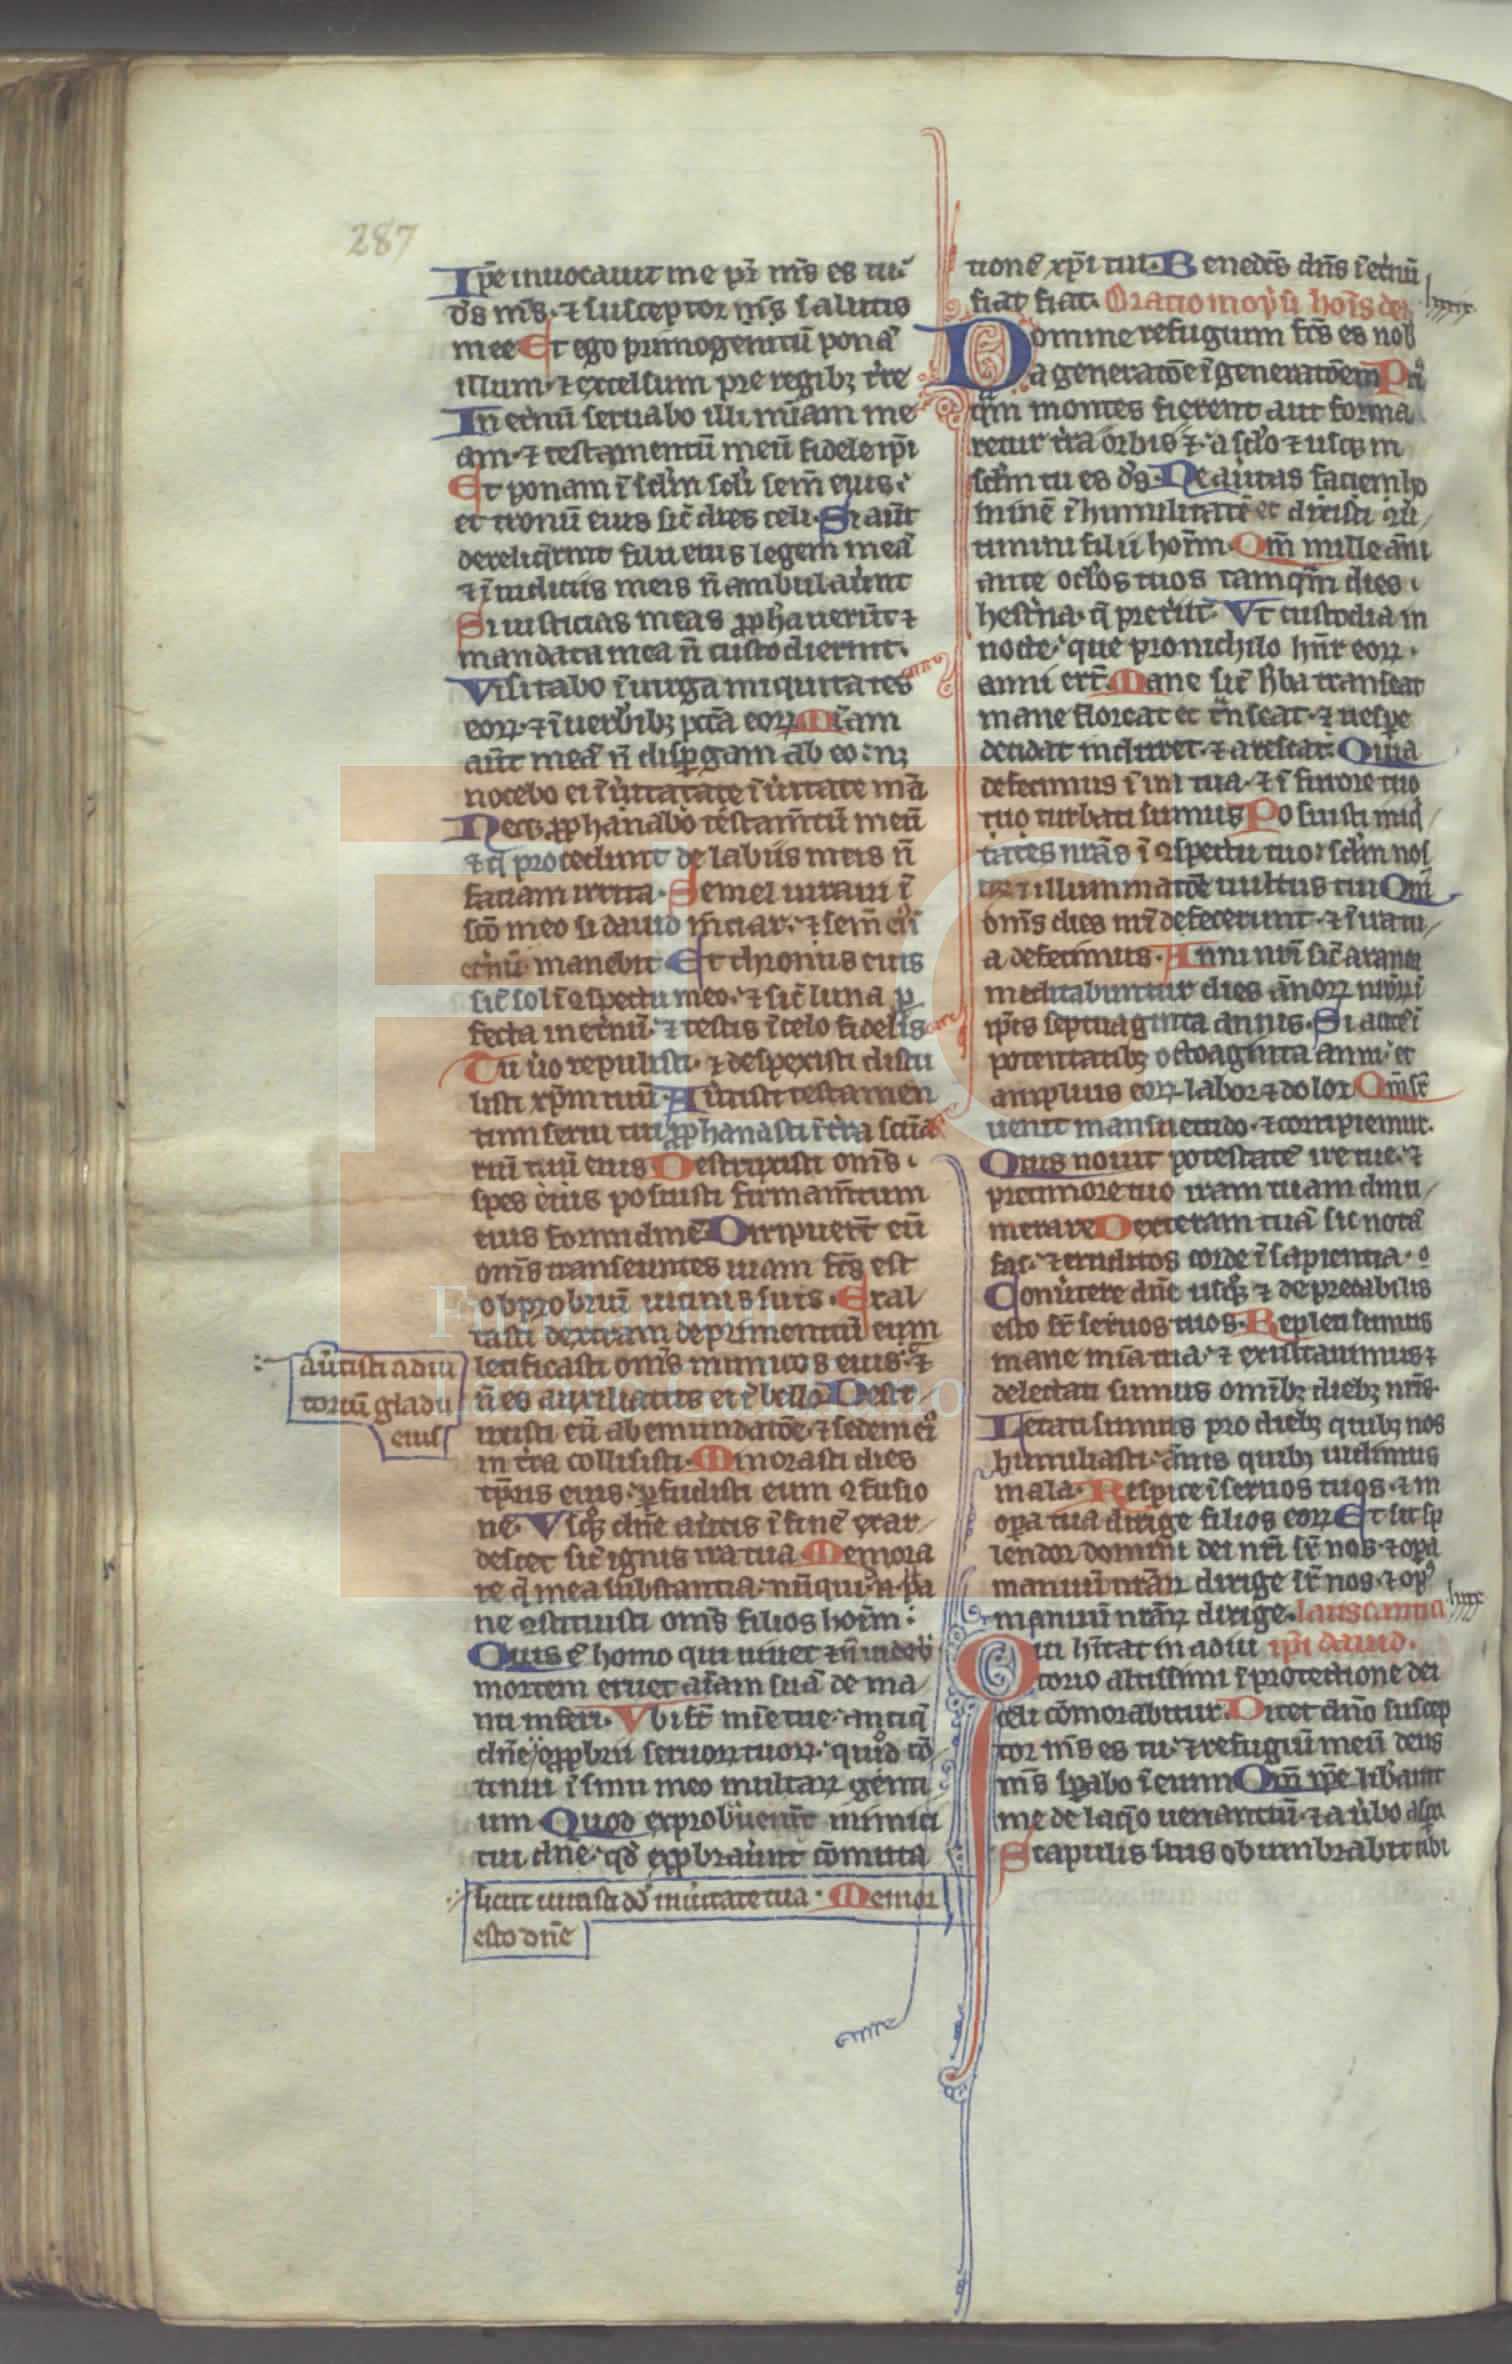 287
Ip̄e inuocauit me pr̄ ms̄ es tu ̄
ds̄ ms̄. ⁊ susceptor ms̄ salutis
mee Et ego primogenitū ponā
illum. ⁊ excelsum pre regibꝫ t̄re
In et̓nū seruabo illi miām me
am. ⁊ testamentū meū fidele ip̄i
Et ponam ī scl̓m scl̓i sem̄ eius.
et tronū eius sic̄ dies celi. Si aūt
dereliq̓rint filii eius legem meā
⁊ ī iudiciis meis n̄ ambulau̓int
Si iusticias meas ꝓphauerīt ⁊
mandata mea n̄ custodierint.
Visitabo ī uirga iniquitates
eoꝝ. ⁊ ī uerbibꝫ pctā eoꝝ Miam
aūt meā n̄ disp̱gam ab eo. neqꝫ
nocebo ei ī u̓itatate ī u̓itate mā
Necꝫ ꝓphanabo testam̄tū meū
⁊ q̄ procedunt de labiis meis n̄
faciam irrita. Semel iuraui ī
scō meo si dauid m̄ciar. ⁊ sem̄ ei ̓ ī
et̓nū manebit Et thronus eius
sic̄ sol ī ꝯspectu meo. ⁊ sic̄ luna ꝑ
fecta in et̓nū. ⁊ testis ī celo fidelis
Tu ūo repulisti. ⁊ despexisti distu
listi xp̄m tuū. Au̓tisti testamen
tum serui tui ꝓphanasti ī t̓ra sc̄ua
riū tuū eius Destruxisti om̄s
spes eius posuisti firmam̄tum
eius formidinē Diripuer̄t eū
om̄s transeuntes uiam fcs̄ est
obprobriū uicinis suis. Exal
tasti dexteram deprimentiū eum
letificasti om̄s inimicos eius. ⁊
au̓tisti adiu
toriū gladii
eius
n̄ es auxiliatus ei ī bello Dest
ruxisti eū ab emundatōe. ⁊ sedem ei ̓
in t̓ra collisisti. Minorasti dies
tp̄ris eius. ꝑfudisti eum ꝯfusio
ne. Vsq̓ꝫ dn̄e au̓tis ī finē exar
descet sic̄ ignis ira tua Memora
re q̄ mea substantia. nūqui ̓ n̄ ua
ne ꝯstituisti om̄s filios hoīm:
Quis ē homo qui uiuet ⁊ n̄ uideb̓
mortem eruet aīam suā de ma
nu inferi. Vbi st̄ mīe tue antiq̄
dn̄e
ꝓbrii seruoꝝ tuoꝝ. quod cō
tinui ī sinu meo multaꝝ genti
um Quod exprobuerūt inimici
tui dn̄e. qd̓ exp̱brau̓unt cōmuta
sicut iurasti dd̓ in u̓itate tua. Memor
esto dn̄e
tionē xp̄i tui. Benedcs̄ dn̄s ī et̓nū
fiat fiat. Oratio moysi hoīs dei lxxxix
Domine refugium fcs̄ es nob̓
a generatōe ī generatōem Pri ̓
q̄m montes fierent aut forma
retur t̓ra orbis ⁊. a sclo ⁊ uscꝫ in
sclm tu es ds̄. Ne au̓tas faciem ho
minē ī humilitatē et dixisti ꝯu
timini filii hoīm. Qm̄ mille ani
ante oclos tuos tamq̄m dies
hest̓na. q̄ pret̓iit. Vt custodia in
nocte. que pro nichilo hn̄t eoꝝ.
anni er̄t. Mane sic̄ h̓ba transeat
mane floreat et t̓nseat. ⁊ uesꝑe
decidat induret. ⁊ arescat. Quia
defecimus ī ira tua. ⁊ ī furore tuo
tuo turbati sumus Posuisti iniq̄
tates nrās ī ꝯspectu tuo. sclm nos
tꝝ ī illuminatōe uultus tui Qm̄
om̄s dies nrī defecerunt. ⁊ ī ira tu
a defecimus. Anni nrī sic̄ aranea
meditabuntur dies ānoꝝ nr̄oꝝ ī
ip̄is septuaginta annis. Si autē ī
potentatibꝫ octoaginta anni. et
amplius eoꝝ labor ⁊ dolor Qm̄ suꝑ
uenit mansuetudo. ⁊ corripiemur.
Quis nouit potestatē ire tue. ⁊
pre timore tuo iram tuam dinu
merare Dexteram tuā sic notā
fac. ⁊ eruditos corde ī sapientia.
Conu̓tere dn̄e usq̓ꝫ ⁊ deprecabilis
esto sr̄ seruos tuos. Repleti sumus
mane mīa tua. ⁊ exultauimus ⁊
delectati sumus omībꝫ diebꝫ nr̄is.
Letati sumus pro diebꝫ quibꝫ nos
humiliasti. ānis quibꝫ uidimus
mala. Respice ī seruos tuos. ⁊ in
oꝑa tua dirige filios eoꝝ Et sit sp̱
lendor domini dei nrī sr̄ nos. ⁊ oꝑa
manuū nrāꝝ dirige sr̄ nos. ⁊ op ̓
manuū nrāꝝ dirige. laus cantici lxxxx
Qui hītat in adiu ip̄i dauid.
torio altissimi ī protectione dei
celi cōmorabitur. Dicet dn̄o suscep
tor ms̄ es tu. ⁊ refugiū meū deus
ms̄ sp̱abo ī eum Qm̄ ip̄e lib̓auit
me de laq̓o uenantiū. ⁊ a u̓bo asꝑo
Scapulis suis obumbrabit tibi